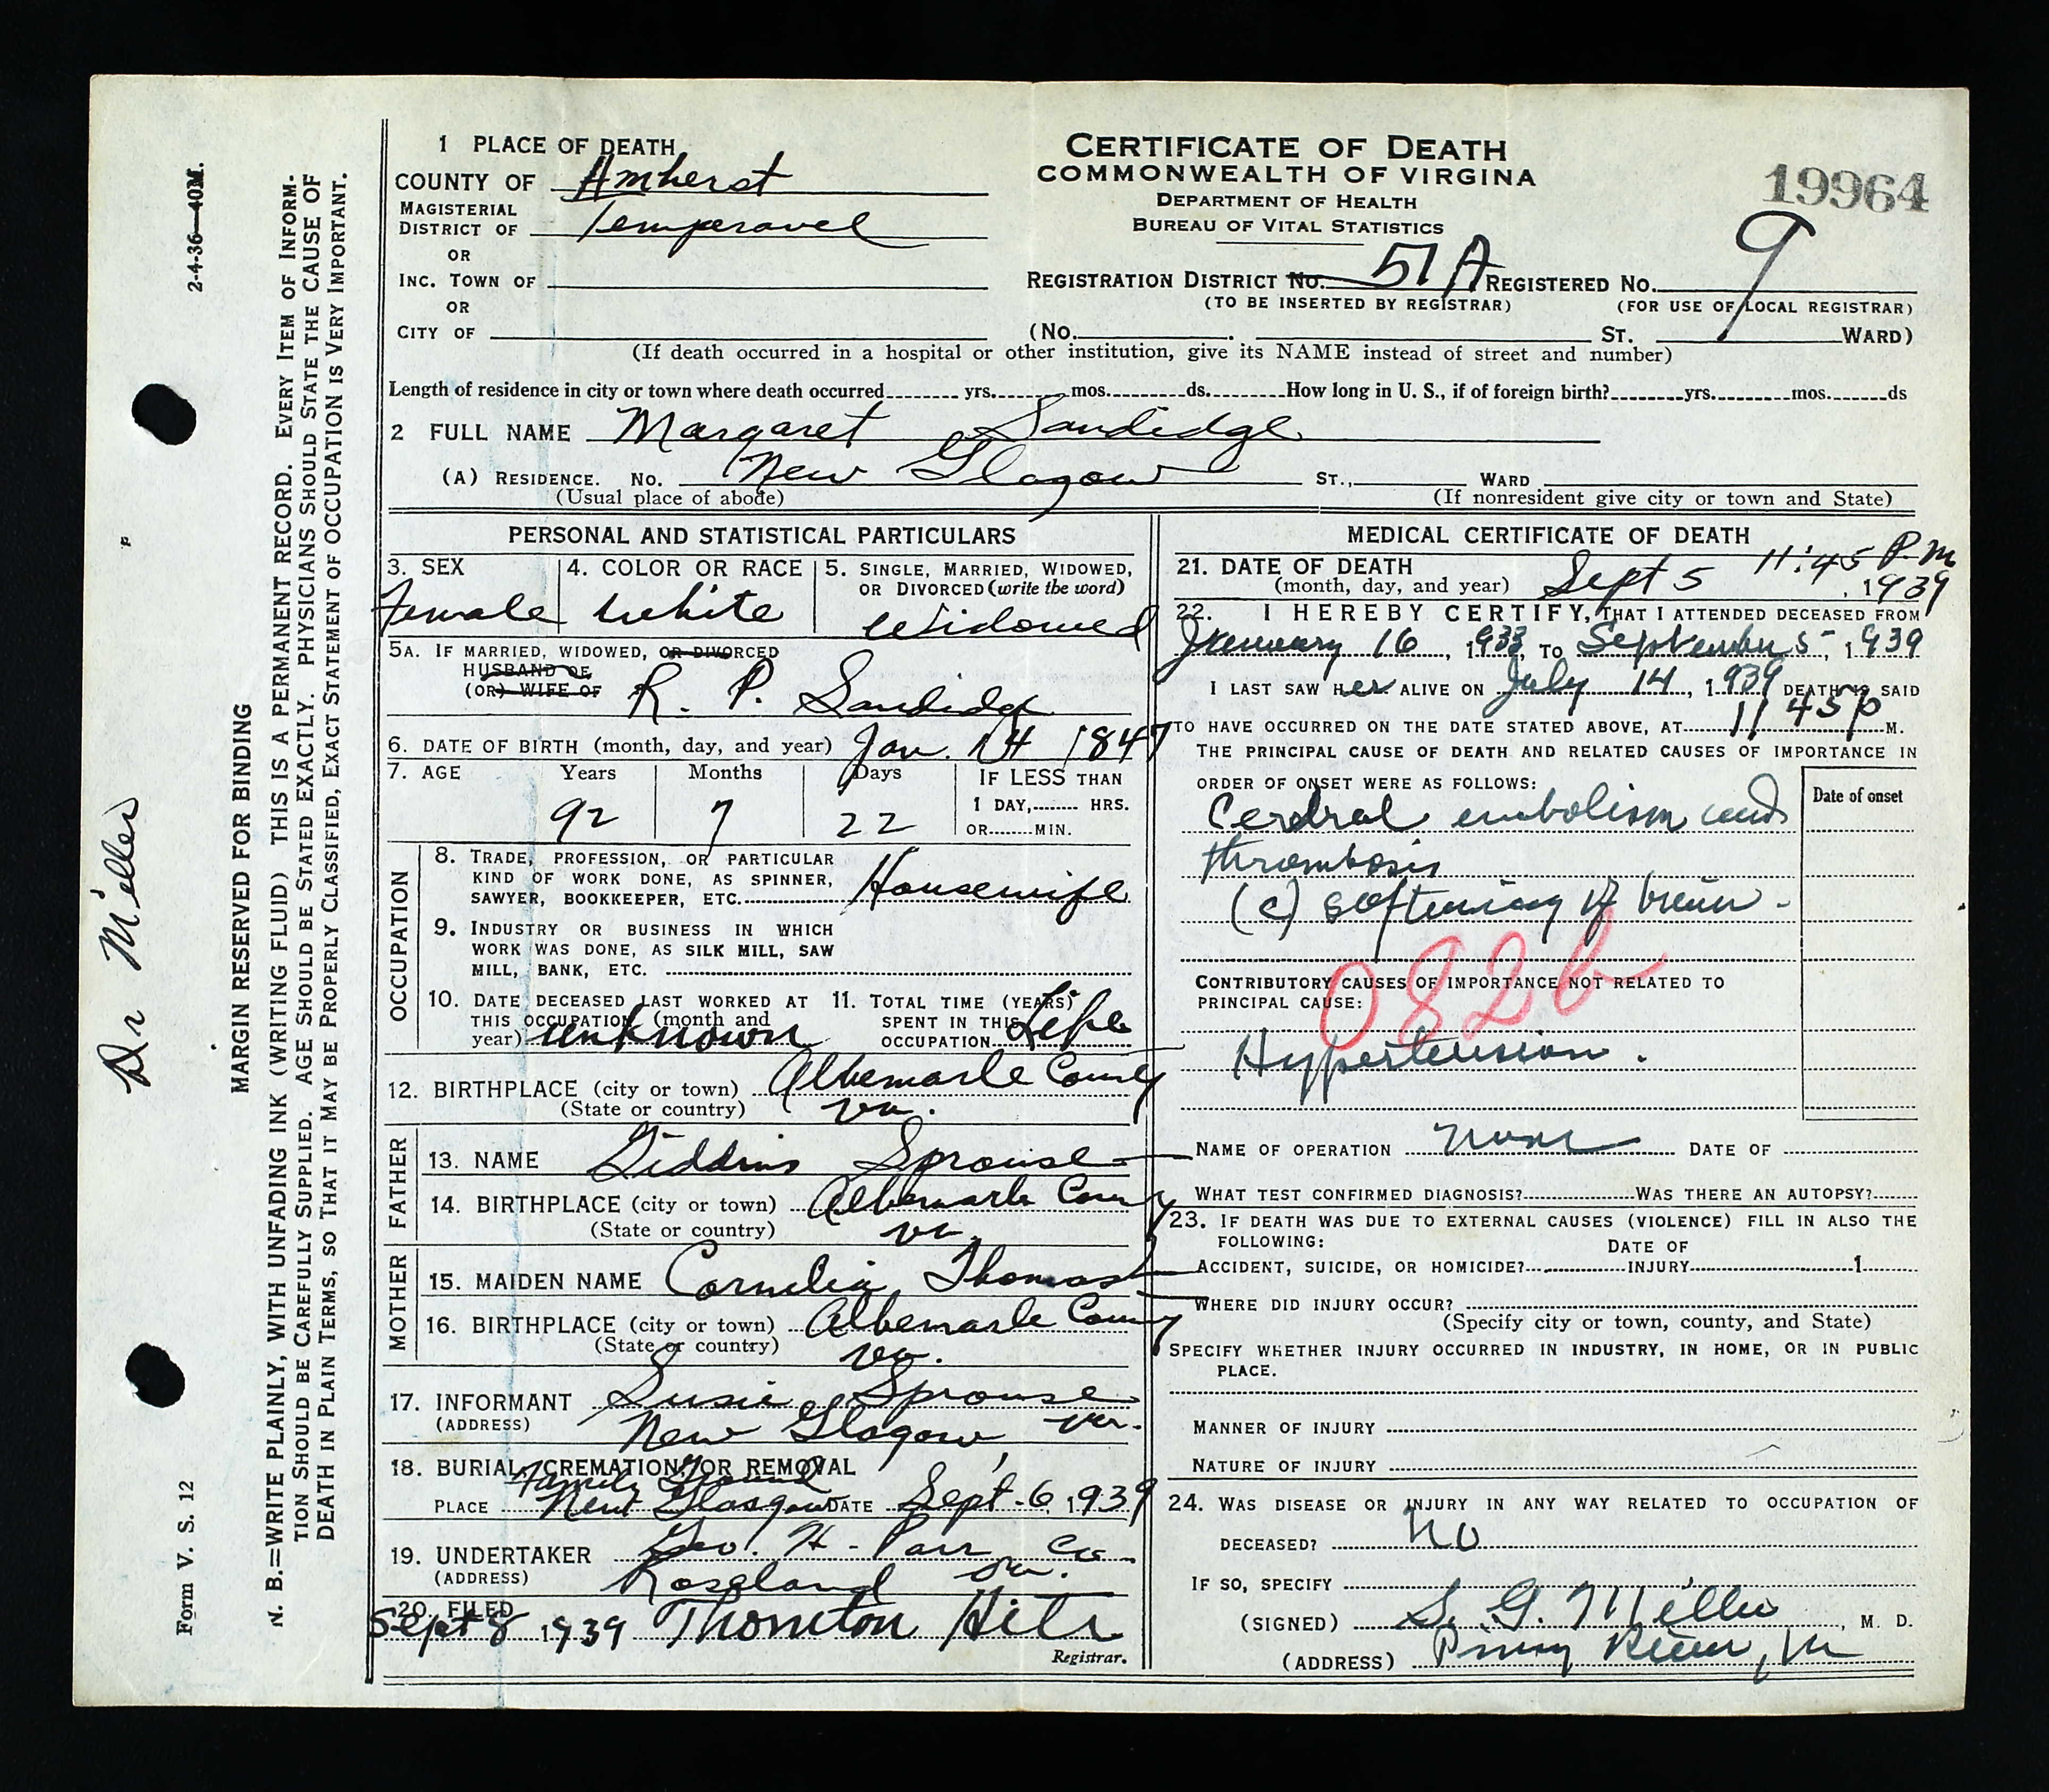 2-4-36—40M.
MARGIN RESERVED FOR BINDING
N. B.=WRITE PLAINLY, WITH UNFADING INK (WRITING FLUID) THIS IS A PERMANENT RECORD. EVERY ITEM OF INFORM-
TION SHOULD BE CAREFULLY SUPPLIED. AGE SHOULD BE STATED EXACTLY. PHYSICIANS SHOULD STATE THE CAUSE OF
DEATH IN PLAIN TERMS, SO THAT IT MAY BE PROPERLY CLASSIFIED, EXACT STATEMENT OF OCCUPATION IS VERY IMPORTANT.
Form V. S. 12
Dr Miller
CERTIFICATE OF DEATH
COMMONWEALTH OF VIRGINA
DEPARTMENT OF HEALTH
BUREAU OF VITAL STATISTICS
19964
1 PLACE OF DEATH
COUNTY OF Amherst
MAGISTERIAL
DISTRICT OF
OR
INC. TOWN OF
OR
CITY OF
REGISTRATION DISTRICT No. 51A REGISTERED NO. 9
(TO BE INSERTED BY REGISTRAR) (FOR USE OF LOCAL REGISTRAR)
(No. ST. WARD)
(If death occurred in a hospital or other institution, give its NAME instead of street and number)
Length of residence in city or town where death occurred yrs. mos. ds. How long in U. S., if of foreign birth? yrs. mos. ds
2 FULL NAME Margaret Sandidge
(A) RESIDENCE. NO. New Glagow ST., WARD
(Usual place of abode) (If nonresident give city or town and State)
PERSONAL AND STATISTICAL PARTICULARS
3. SEX 4. COLOR OR RACE 5. SINGLE, MARRIED, WIDOWED,
OR DIVORCED (write the word)
Female White Widowed
5A. IF MARRIED, WIDOWED, OR DIVORCED
HUSBAND OF
(OR) WIFE OF R. P. Sandidge
6. DATE OF BIRTH (month, day, and year) Jan. 14 1847
7. AGE Years Months Days IF LESS THAN
1 DAY, HRS.
OR MIN.
92 7 22
OCCUPATION
8. TRADE, PROFESSION, OR PARTICULAR
KIND OF WORK DONE, AS SPINNER,
SAWYER, BOOKKEEPER, ETC. Housewife
9. INDUSTRY OR BUSINESS IN WHICH
WORK WAS DONE, AS SILK MILL, SAW
MILL, BANK, ETC.
10. DATE DECEASED LAST WORKED AT
THIS OCCUPATION (month and
year) unknown
11. TOTAL TIME (YEARS)
SPENT IN THIS
OCCUPATION Life
12. BIRTHPLACE (city or town) Albemarle County
(State or country) Va.
FATHER
13. NAME Sprouse
14. BIRTHPLACE (city or town) Albemarle County
(State or country) Va.
MOTHER
15. MAIDEN NAME Cornelia Thomas
16. BIRTHPLACE (city or town) Albemarle County
(State or country) Va.
17. INFORMANT Susie Sprouse
(ADDRESS) New Glagow, Va.
18. BURIAL, CREMATION, OR REMOVAL
Family Ground
PLACE New Glasgow DATE Sept. 6, 1939
19. UNDERTAKER Geo. H. Parr Co.
(ADDRESS) Roseland Va.
20. FILED
Sept 8 1939 Thornton
Registrar.
MEDICAL CERTIFICATE OF DEATH
11:45 P.M
21. DATE OF DEATH
(month, day, and year) Sept 5, 1939
22. I HEREBY CERTIFY, THAT I ATTENDED DECEASED FROM
January 16, 1933 TO September 5, 1939
I LAST SAW Her ALIVE ON July 14, 1939 DEATH IS SAID
TO HAVE OCCURRED ON THE DATE STATED ABOVE, AT 11 45 p M.
THE PRINCIPAL CAUSE OF DEATH AND RELATED CAUSES OF IMPORTANCE IN
ORDER OF ONSET WERE AS FOLLOWS:
Date of onset
embolism and
thrombosis
(c) softening of brain.
082b
CONTRIBUTORY CAUSES OF IMPORTANCE NOT RELATED TO
PRINCIPAL CAUSE:
Hypertension.
NAME OF OPERATION none DATE OF
WHAT TEST CONFIRMED DIAGNOSIS? WAS THERE AN AUTOPSY?
23. IF DEATH WAS DUE TO EXTERNAL CAUSES (VIOLENCE) FILL IN ALSO THE
FOLLOWING:
DATE OF
ACCIDENT, SUICIDE, OR HOMICIDE? INJURY 1
WHERE DID INJURY OCCUR?
(Specify city or town, county, and State)
SPECIFY WHETHER INJURY OCCURRED IN INDUSTRY, IN HOME, OR IN PUBLIC
PLACE.
MANNER OF INJURY
NATURE OF INJURY
24. WAS DISEASE OR INJURY IN ANY WAY RELATED TO OCCUPATION OF
DECEASED? No
IF SO, SPECIFY
(SIGNED) S. G. Miller, M. D.
(ADDRESS) Piney River, Va